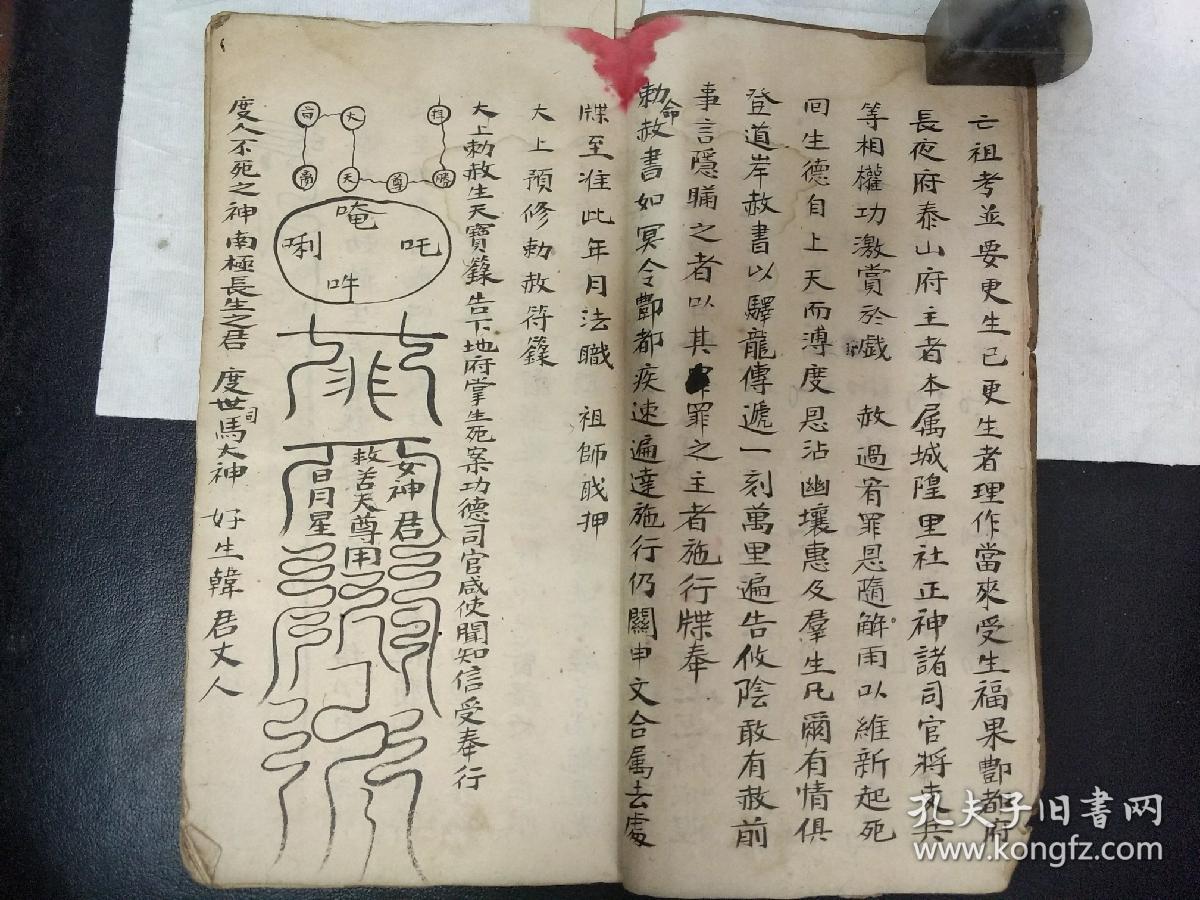 亡祖考並要更生已更生者理作當來受生福果酆都府
長夜府泰山府主者本属城隍里社正神諸司官將
等相權功激賞於戲 赦過宥罪恩隨解雨以維新起死
回生德自上天而溥度恩沾幽壤惠及羣生凡爾有情俱
登道岸赦書以驛龍傳遞一刻萬里遍告攸陰敢有赦前
事言隱瞞之者以其罪罪之主者施行牒奉
勅命赦書如冥令酆都疾速遍達施行仍關申文合属去處
牒至准此年月法職 祖師戝押
大上預修勅赦符籙
大上勅赦生天寶籙告下地府掌生死案功德司官咸使聞知信受奉行
大 天 尊
唵
唎 吒
吽
女神君
救苦天尊用
日月星
度人不死之神南極長生之君 度世司馬大神 好生韓君丈人
孔夫子旧書网
www.kongfz.com